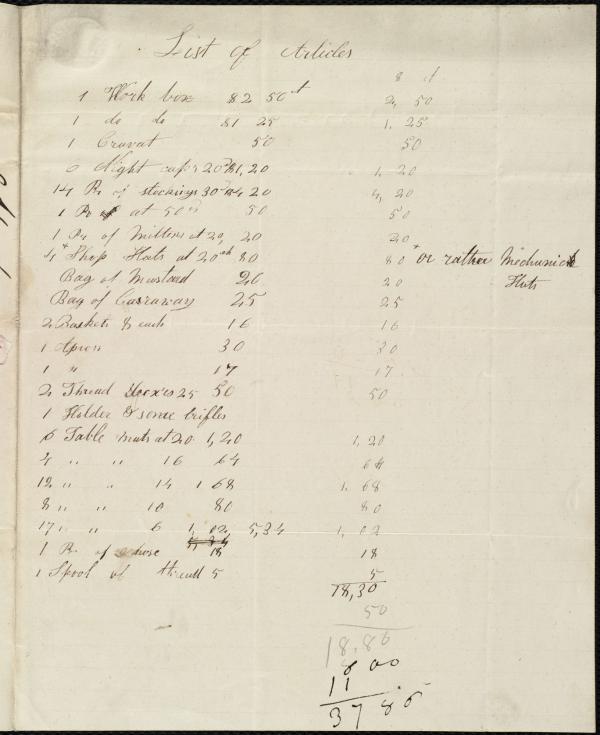 List of Articles
$ ct
1 Work box $2 50ct 2, 50
1 do do $1 25 1, 25
1 Cravat 50 50
6 Night caps 20 $1,20 1, 20
14 Pr of stockings 30 $4 20 4, 20
1 Pr at 50 50 50
1 Pr of Mittens at 20, 20 20
4 + Shop Hats at 20 80 80 + or rather Mechanick
Bag of Mustard 20 20 Hats
Bag of Carraway 25 25
2 Baskets 8 each 16 16
1 Apron 30 30
1 " 17 17
2 Thread Boxes 25 50 50
1 Holder & some trifles
6 Table mats at 20 1,20 1,20
4 " " 16 64 64
12 " " 14 1 68 1, 68
8 " " 10 80 80
17 " " 6 1, 02 5,34 1, 02
1 Pr of hose 18 18
1 Spool of thread 5 5
18,30
50
18.80
8 00
11
37 80